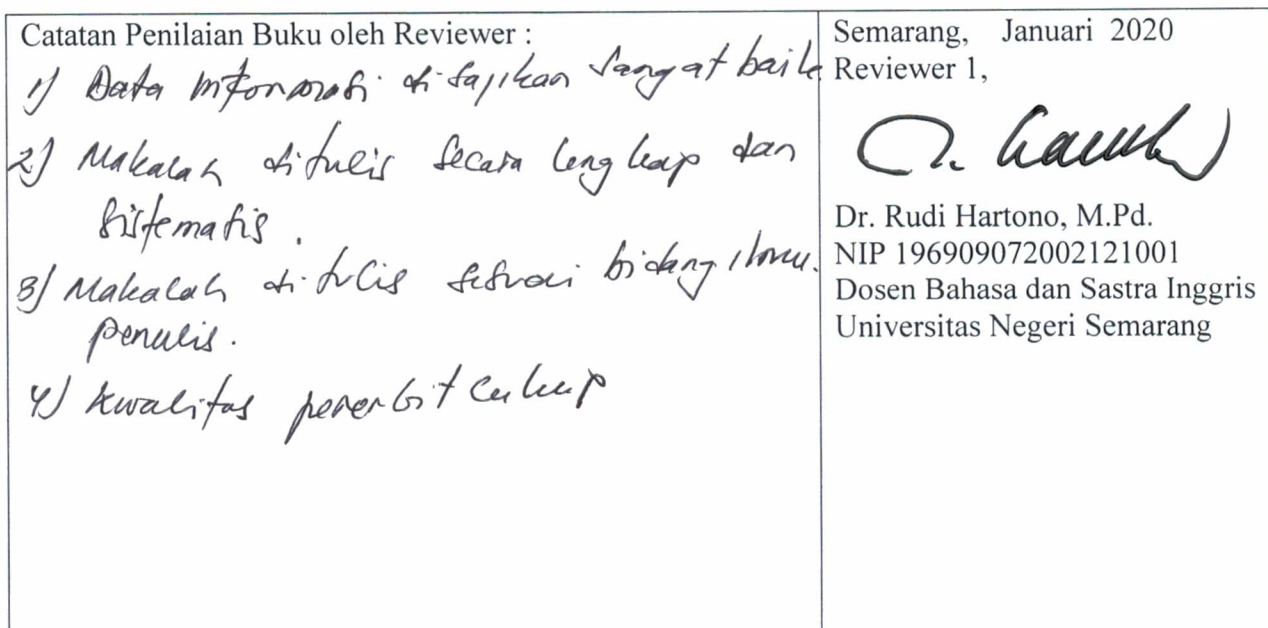 Catatan Penilaian Buku oleh Reviewer :
1) Data informasi disajikan sangat baik
2) Makalah ditulis secara lengkap dan
sistematis.
3) Makalah ditulis sesuai bidang ilmu
penulis.
4) Kwalitas penerbit cukup
Semarang, Januari 2020
Reviewer 1,
Dr. Rudi Hartono, M.Pd.
NIP 196909072002121001
Dosen Bahasa dan Sastra Inggris
Universitas Negeri Semarang